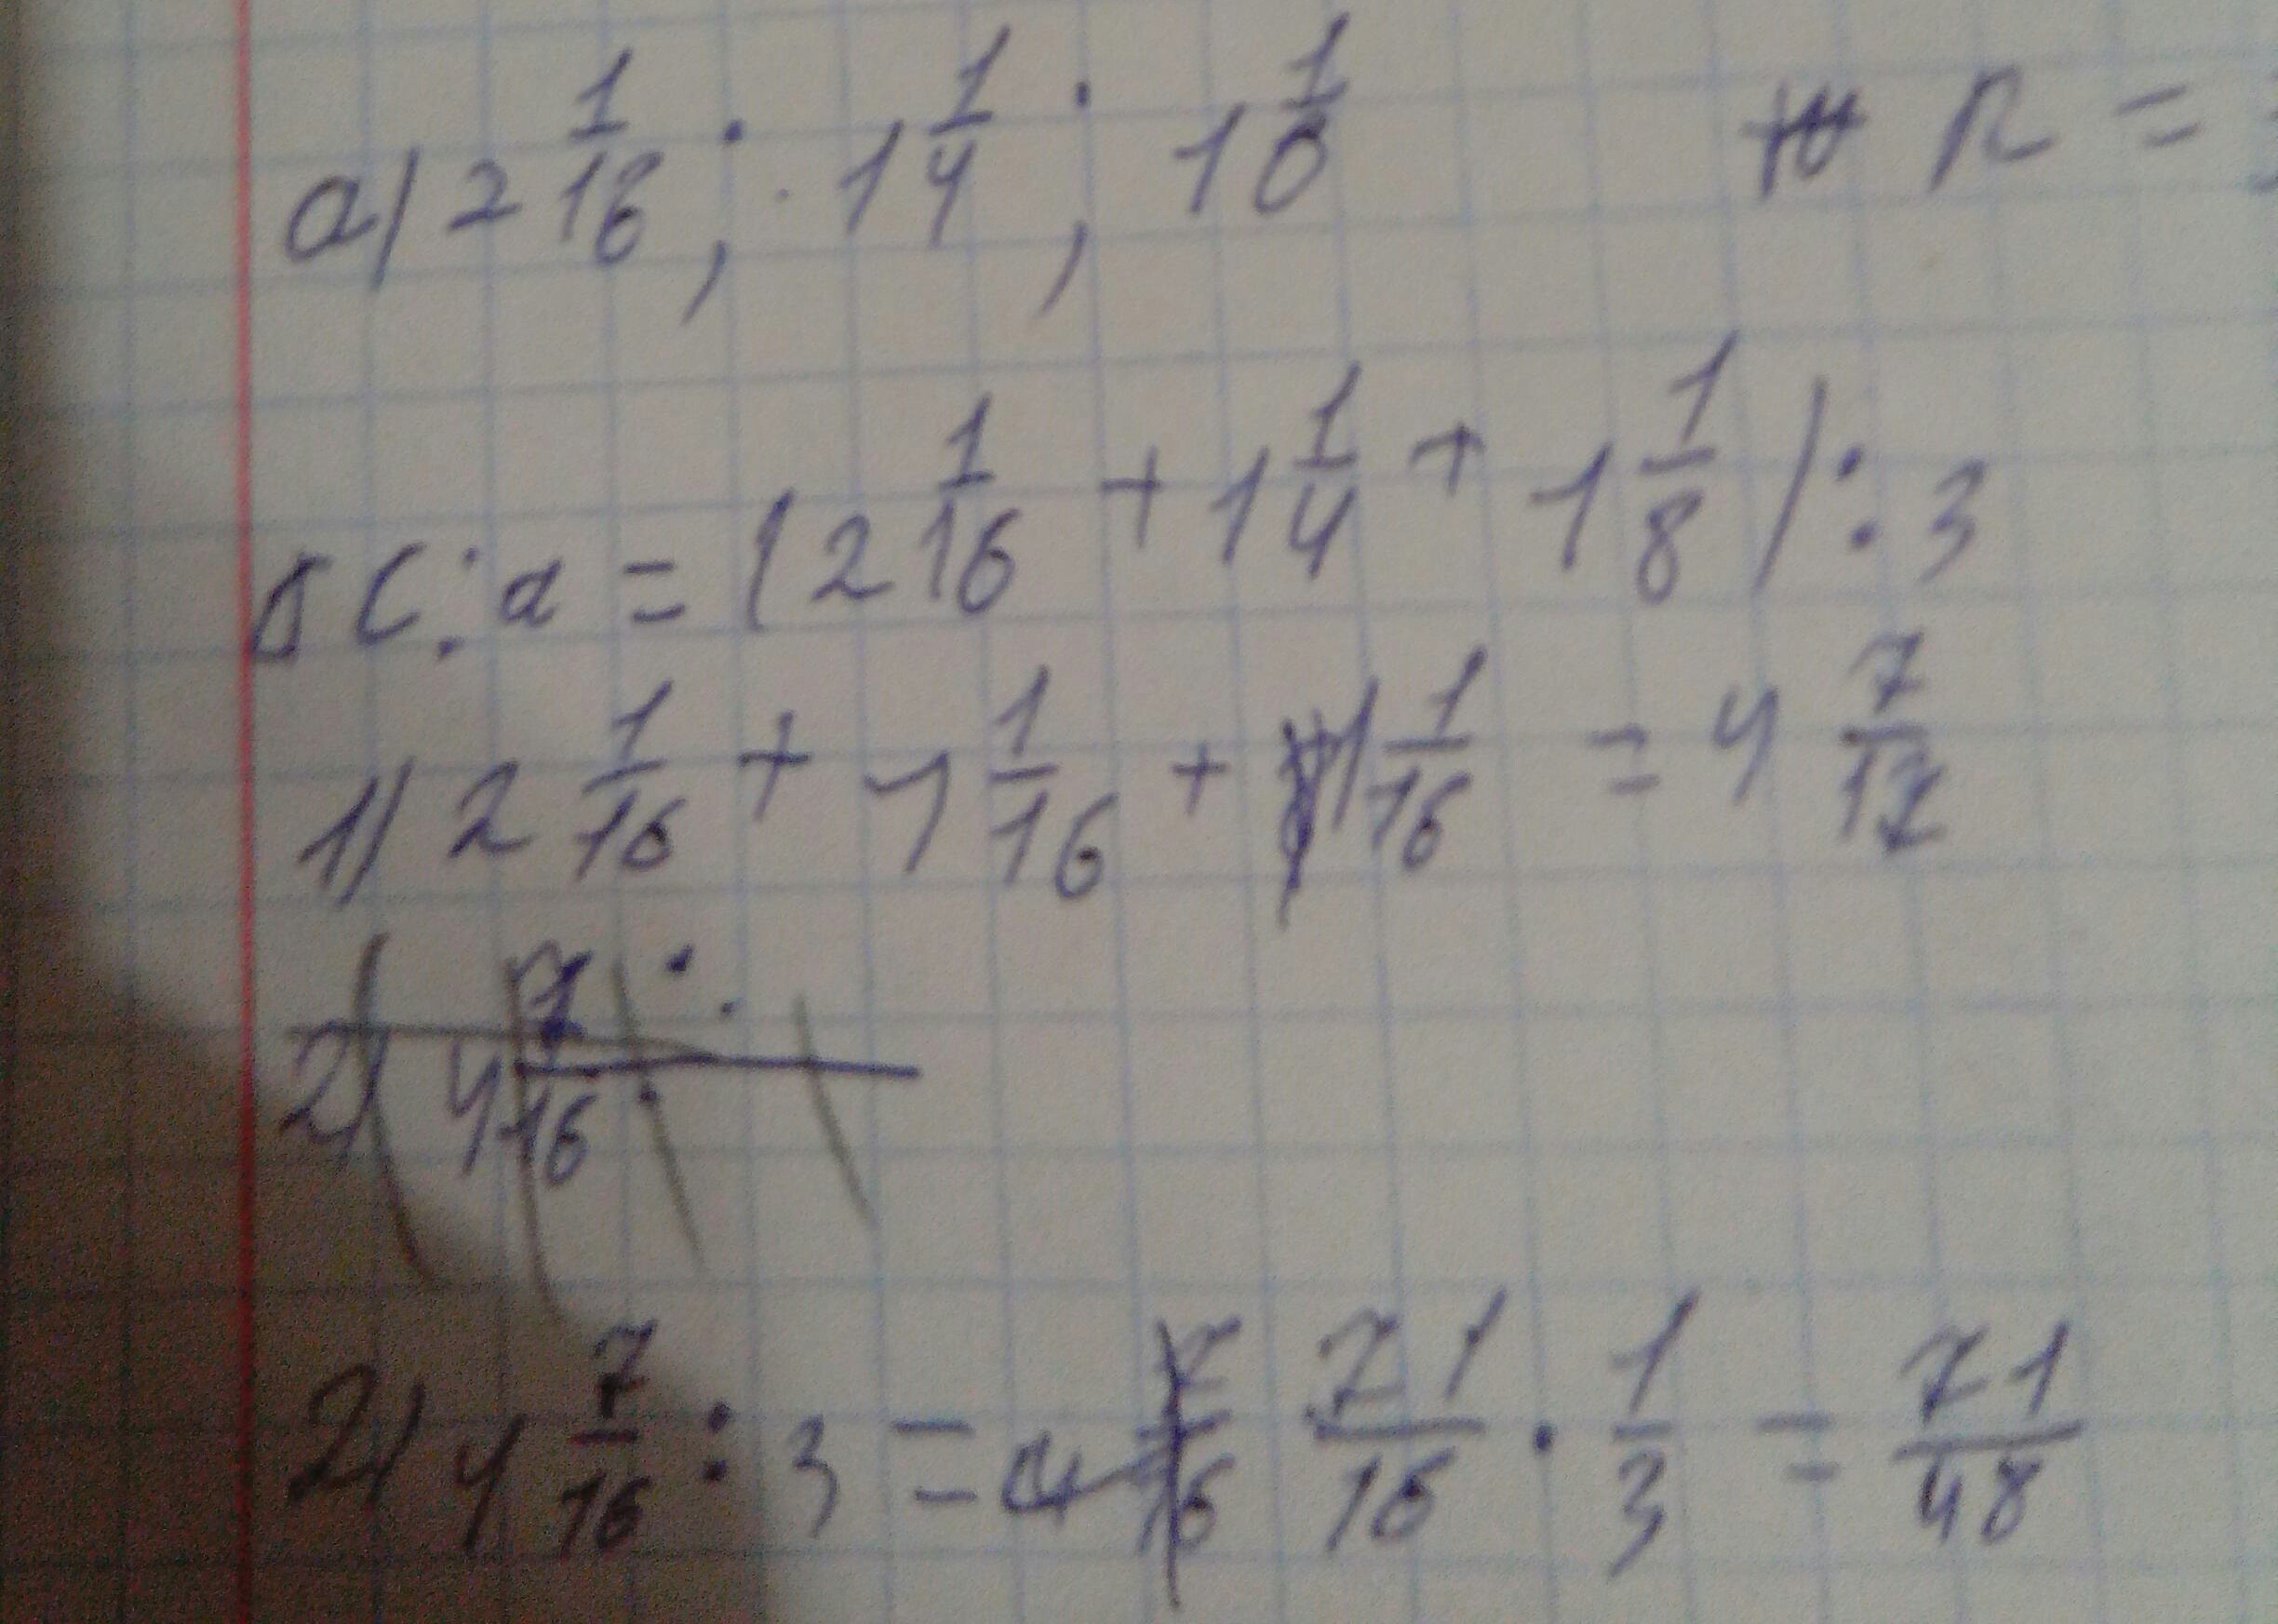 а) 2 1/16 ; 1 1/4 ; 1 1/8 n =
с.а = (2 1/16 + 1 1/4 + 1 1/8) : 3
1) 2 1/16 + 1 1/16 + 1 1/16 = 4 7/12
2) 4 7/16 :
2) 4 7/16 : 3 = 4 7/16 71/16 · 1/3 = 71/48